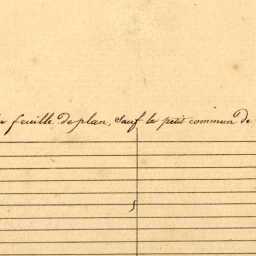 feuille de plan, sauf le petit commun de